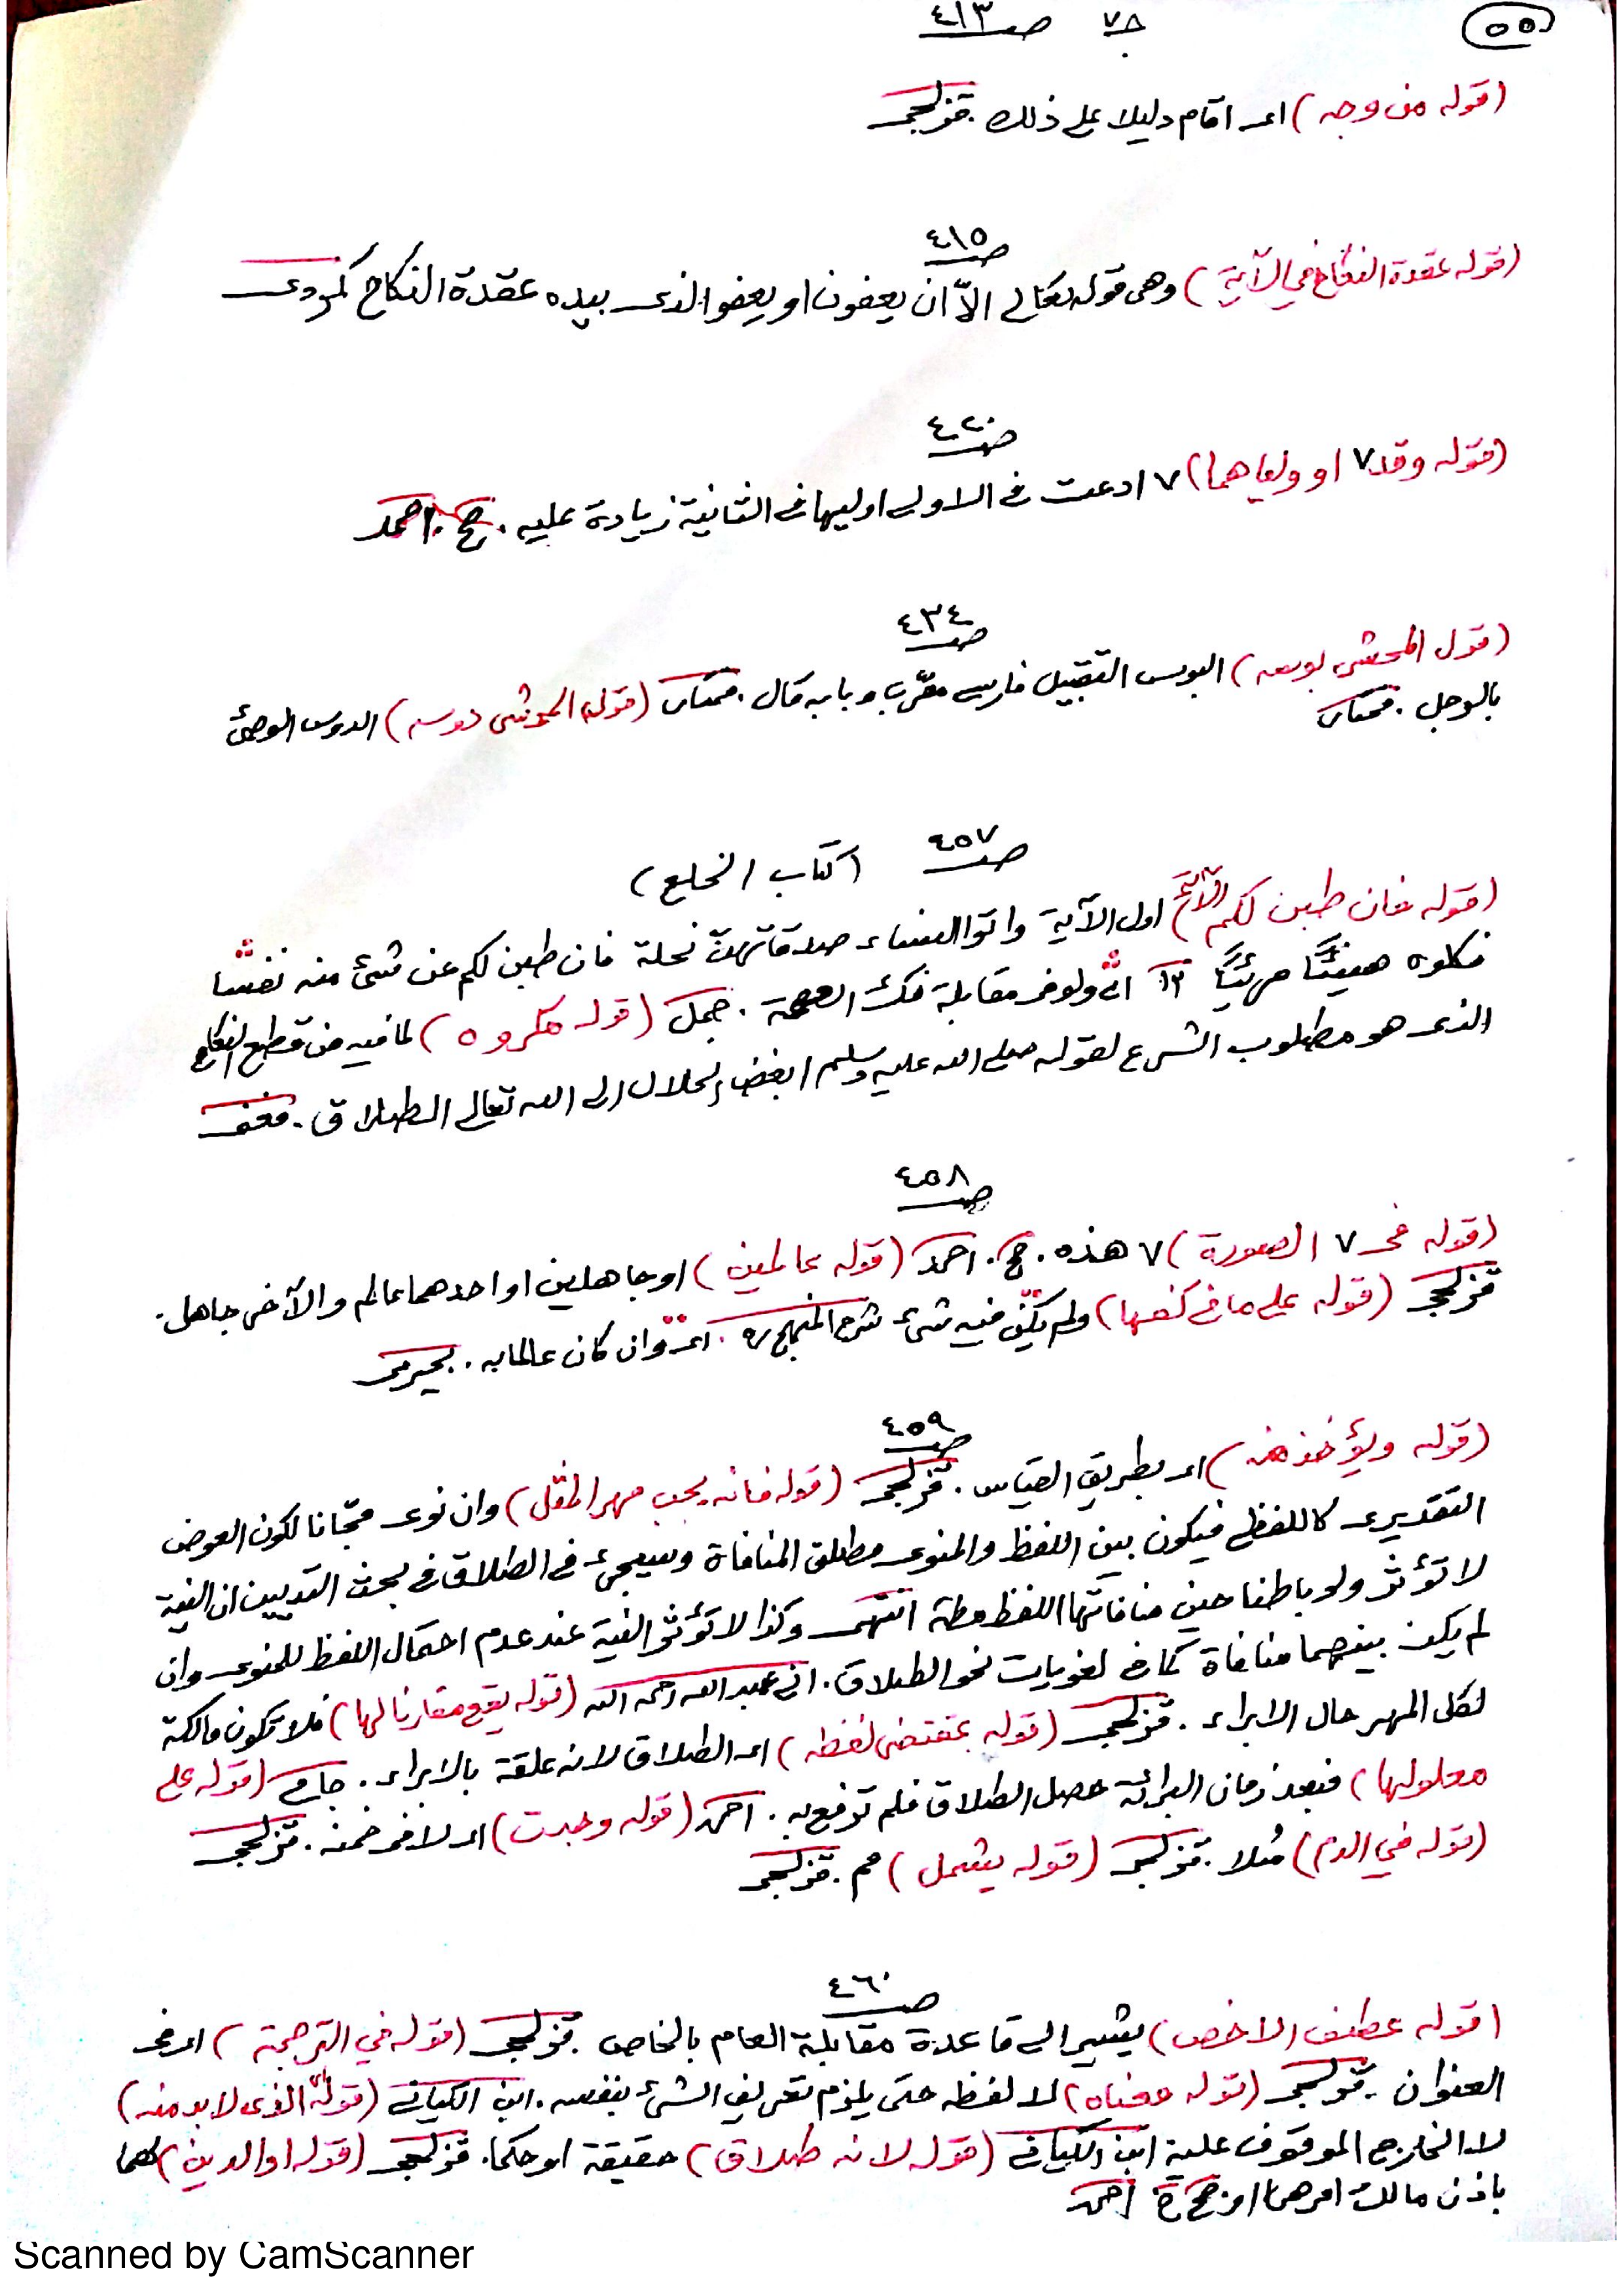 ٥٥
ج٧ صـ ٤١٣
(قوله من وجه) اى اقام دليلا على ذلك . قزلجى
صـ ٤١٥
(قوله عقدة النكاح في الآية) وهى قوله تعالى الاّ ان يعفون او يعفو الذى بيده عقدة النكاح كردى
صـ ٤٢٠
(قوله وقد ٧ او ولياهما) ٧ ادعت فى الاولى او ليها فى الثانية زيادة عليه . ج . احمد
صـ ٤٣٤
(قول المحشى بوسه) البوس التقبيل فارسى معرّب وبابه قال . مختار (قول المحشى دوسه) الدوس الوطئ
بالرجل . مختار
صـ ٤٥٧ (كتاب الخلع)
(قوله فان طبن لكم الآية) اول الآية واتوا النساء صدقاتهنّ نحلة فان طبن لكم عن شئ منه نفسًا
فكلوه هنيئًا مريئًا اى ولو فى مقابلة فك العصمة . جمل (قوله مكروه) لما فيه من قطع النكاح
الذى هو مطلوب الشرع لقوله صلى الله عليه وسلم ابغض الحلال الى الله تعالى الطلاق . مغنى
صـ ٤٥٨
(قوله فى ٧ الصورة) ٧ هذه . ج . احمد (قوله عالمين) او جاهلين او احدهما عالم والآخر جاهل .
قزلجى (قوله على ما فى كفها) ولم يكن فيه شئ شرح المنهج . اى وان كان عالما به . بجيرمى
صـ ٤٥٩
(قوله ويؤخذ منه) اى بطريق القياس . قزلجى (قوله فانه يجب مهر المثل) وان نوى مجّانا لكون العوض
التقديرى كاللفظى فيكون بين اللفظ والمنوى مطلق المنافاة وسيجئ فى الطلاق فى بحث التديين ان النية
لا تؤثر ولو باطنا حين منافاتها اللفظ مطة انتهى وكذا لا تؤثر النية عند عدم احتمال اللفظ للمنوى وان
لم يكن بينهما منافاة كما فى لغويات نحو الطلاق . عبد الله رحمه الله (قوله يقع مقارنا لها) فلا تكون مالكة
لكل المهر حال الابراء . قزلجى (قوله بمقتضى لفظه) اى الطلاق لانه علقة بالابراء . جامى (قوله على
معلولها) فبعد زمان البرائة حصل الطلاق فلم ترفع به . احمد (قوله وجبت) اى لا فى ضمن . قزلجى
(قوله في الدم) مثلا . قزلجى (قوله يشمل) مم . قزلجى
صـ ٤٦٠
(قوله عطف الاخص) يشير الى قاعدة مقابلة العام بالخاص . قزلجى (قوله في الترجمة) اى فى
العنوان . قزلجى (قوله معناه) لا لفظه حتى يلزم تعريف الشئ بنفسه . ابن الكياني (قوله الذى لا بد منه)
لا الخارج الموقوف عليه ابن الكياني (قوله لانه طلاق) حقيقة او حكما . قزلجى (قوله او الدين) كما
باذن مالك امرهما احمد
Scanned by CamScanner